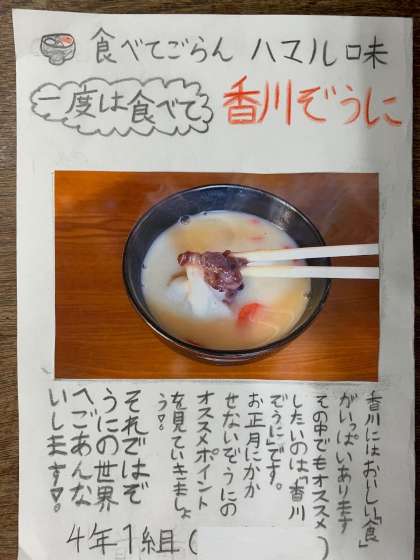 食べてごらん ハマル味
一度は食べて
香川ぞうに
香川にはおいしい「食」
がいっぱいあります
その中でもオススメ
したいのは「香川
ぞうに」です。
お正月にかか
せないぞうにの
オススメポイント
を見ていきましょ
う!。
それではぞ
うにの世界
へごあんな
いします!。
4年1組( )